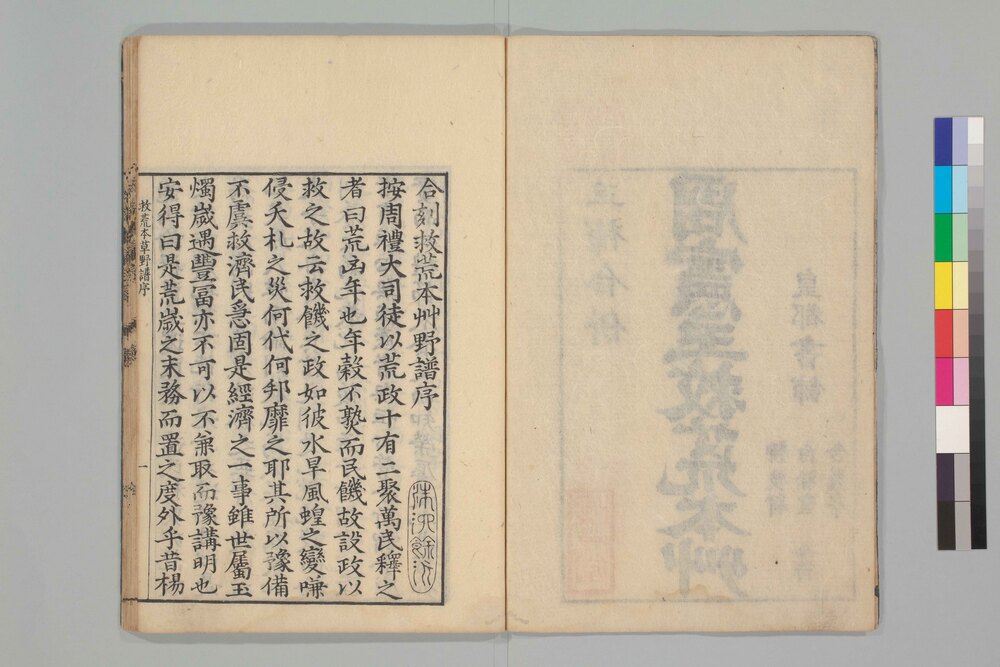 合刻救荒本艸野譜序
按周禮大司徒以荒政十有二聚萬民釋之
者曰荒凶年也年穀不熟而民饑故設政以
救之故云救饑之政如彼水旱風蝗之變嗛
侵夭札之災何代何邦靡之耶其所以豫備
不虞救濟民急固是經濟之一事雖世屬玉
燭歲遇豐冨亦不可以不兼取而豫講明也
安得曰是荒歲之末務而置之度外乎昔楊
救荒本草野譜序
一